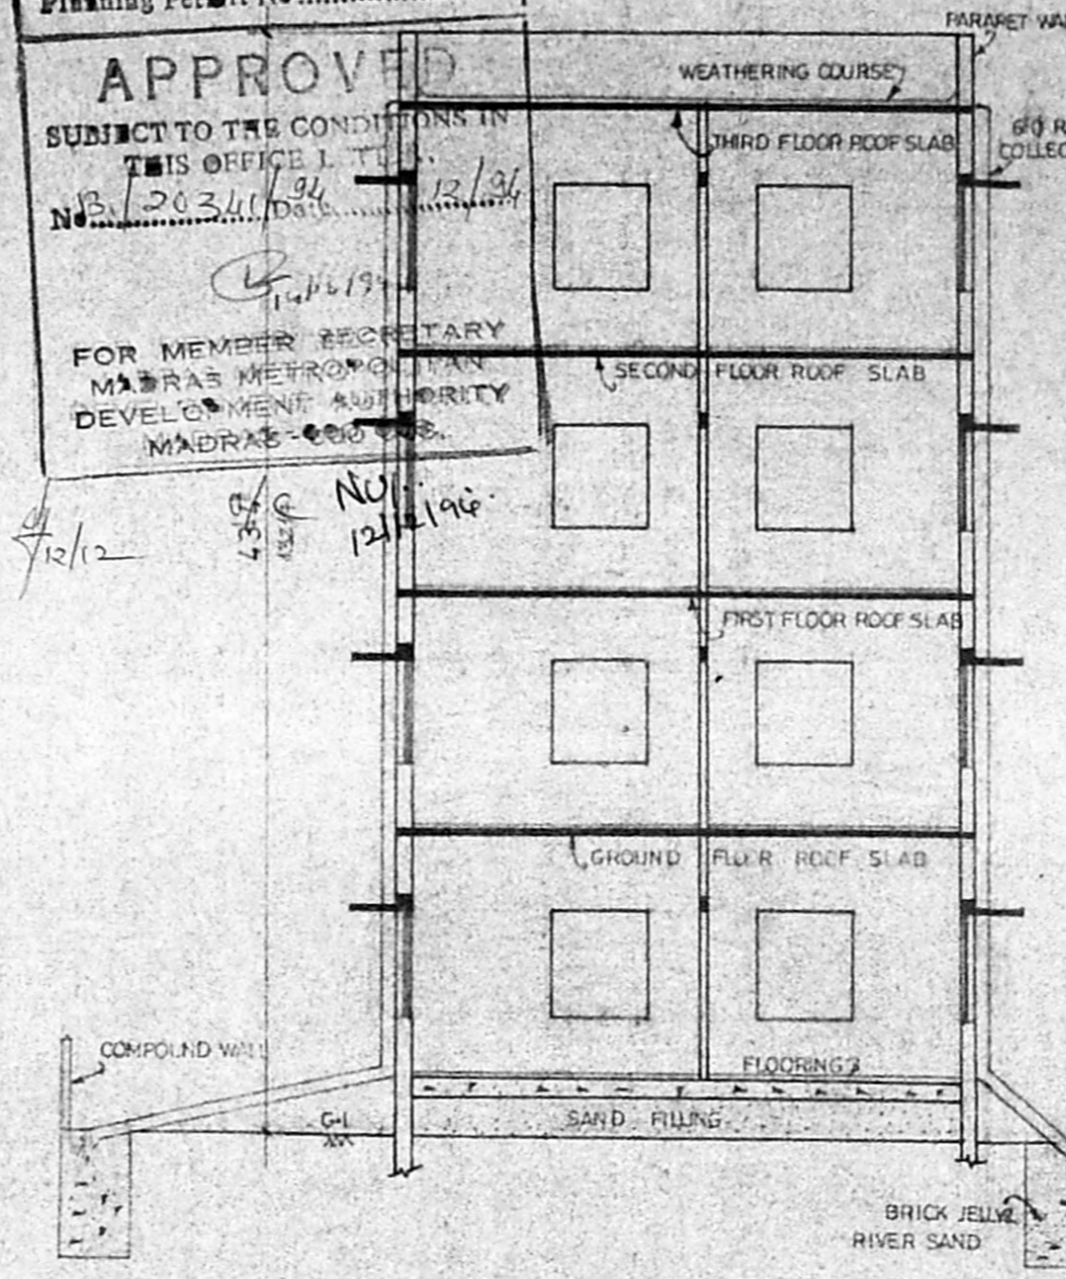 Planning Permit No.
APPROVED
SUBJECT TO THE CONDITIONS IN
THIS OFFICE
No. B/20341/94 Date 12/94
FOR MEMBER SECRETARY
MADRAS METROPOLITAN
DEVELOPMENT AUTHORITY
MADRAS
12/12
12/12/94
PARAPET
WEATHERING COURSE
THIRD FLOOR ROOF SLAB
SECOND FLOOR ROOF SLAB
FIRST FLOOR ROOF SLAB
GROUND FLOOR ROOF SLAB
COMPOUND WALL
FLOORING
G-L
SAND FILLING
BRICK JELLY
RIVER SAND